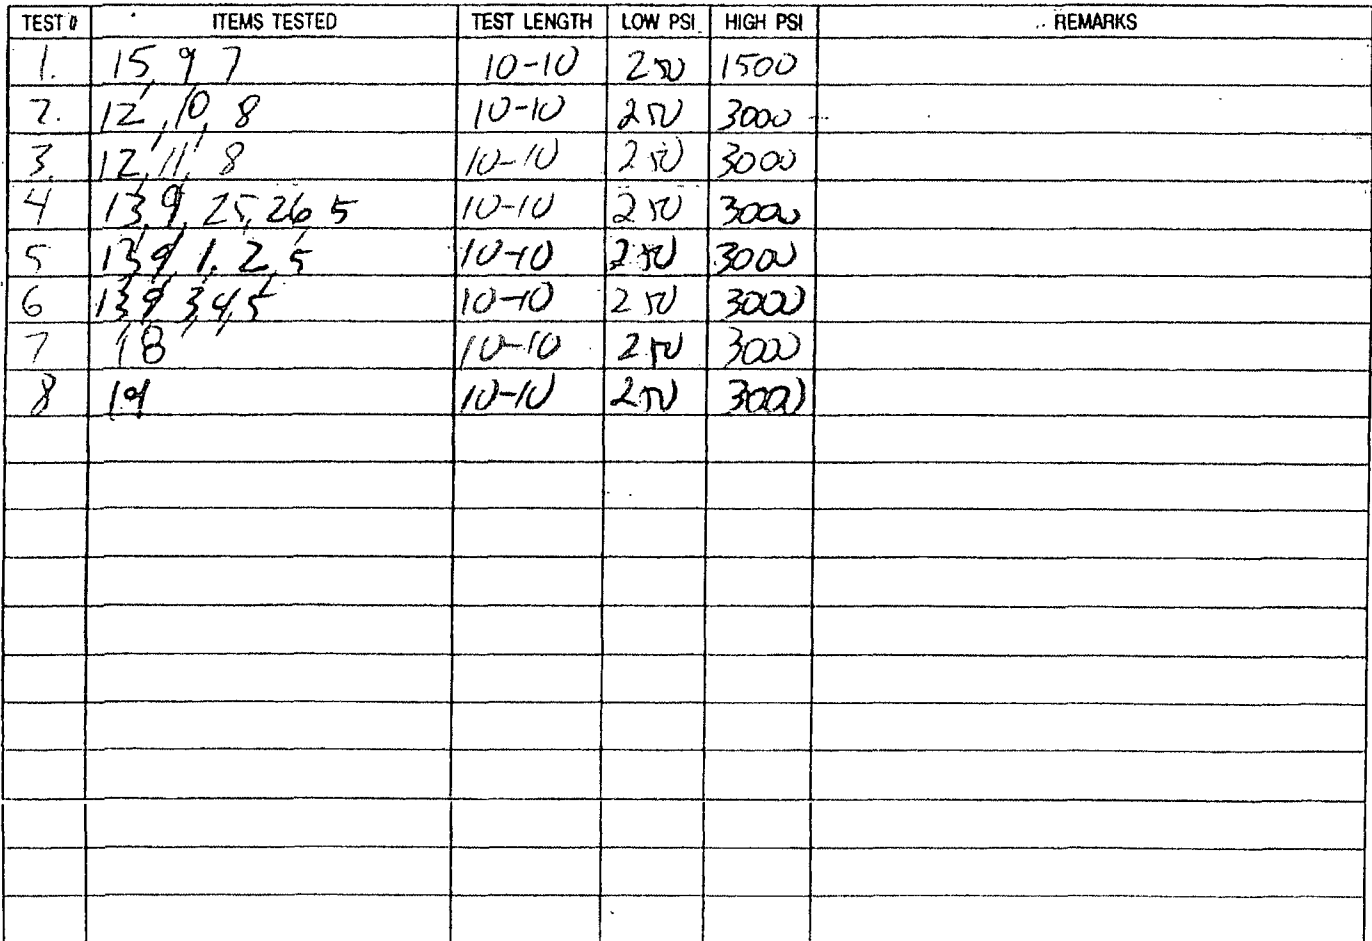 TEST # ITEMS TESTED TEST LENGTH LOW PSI HIGH PSI REMARKS
1. 15, 9, 7 10-10 250 1500
2. 12, 10, 8 10-10 250 3000
3. 12, 11, 8 10-10 250 3000
4 13, 9, 25, 26, 5 10-10 250 3000
5 13, 9, 1, 2, 5 10-10 250 3000
6 13, 9, 3, 4, 5 10-10 250 3000
7 18 10-10 250 3000
8 19 10-10 250 3000